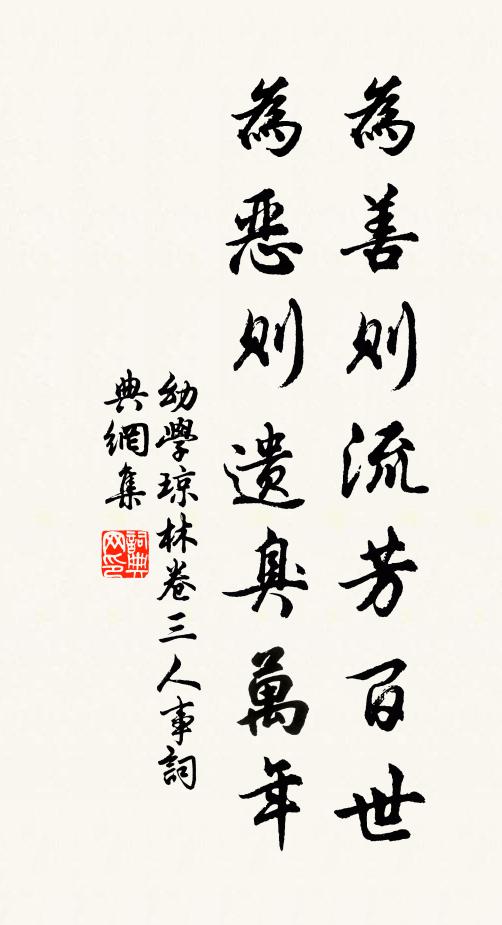 為善則流芳百世
為惡則遺臭萬年
幼學琼林卷三人事詞
典網集
詞典
网印